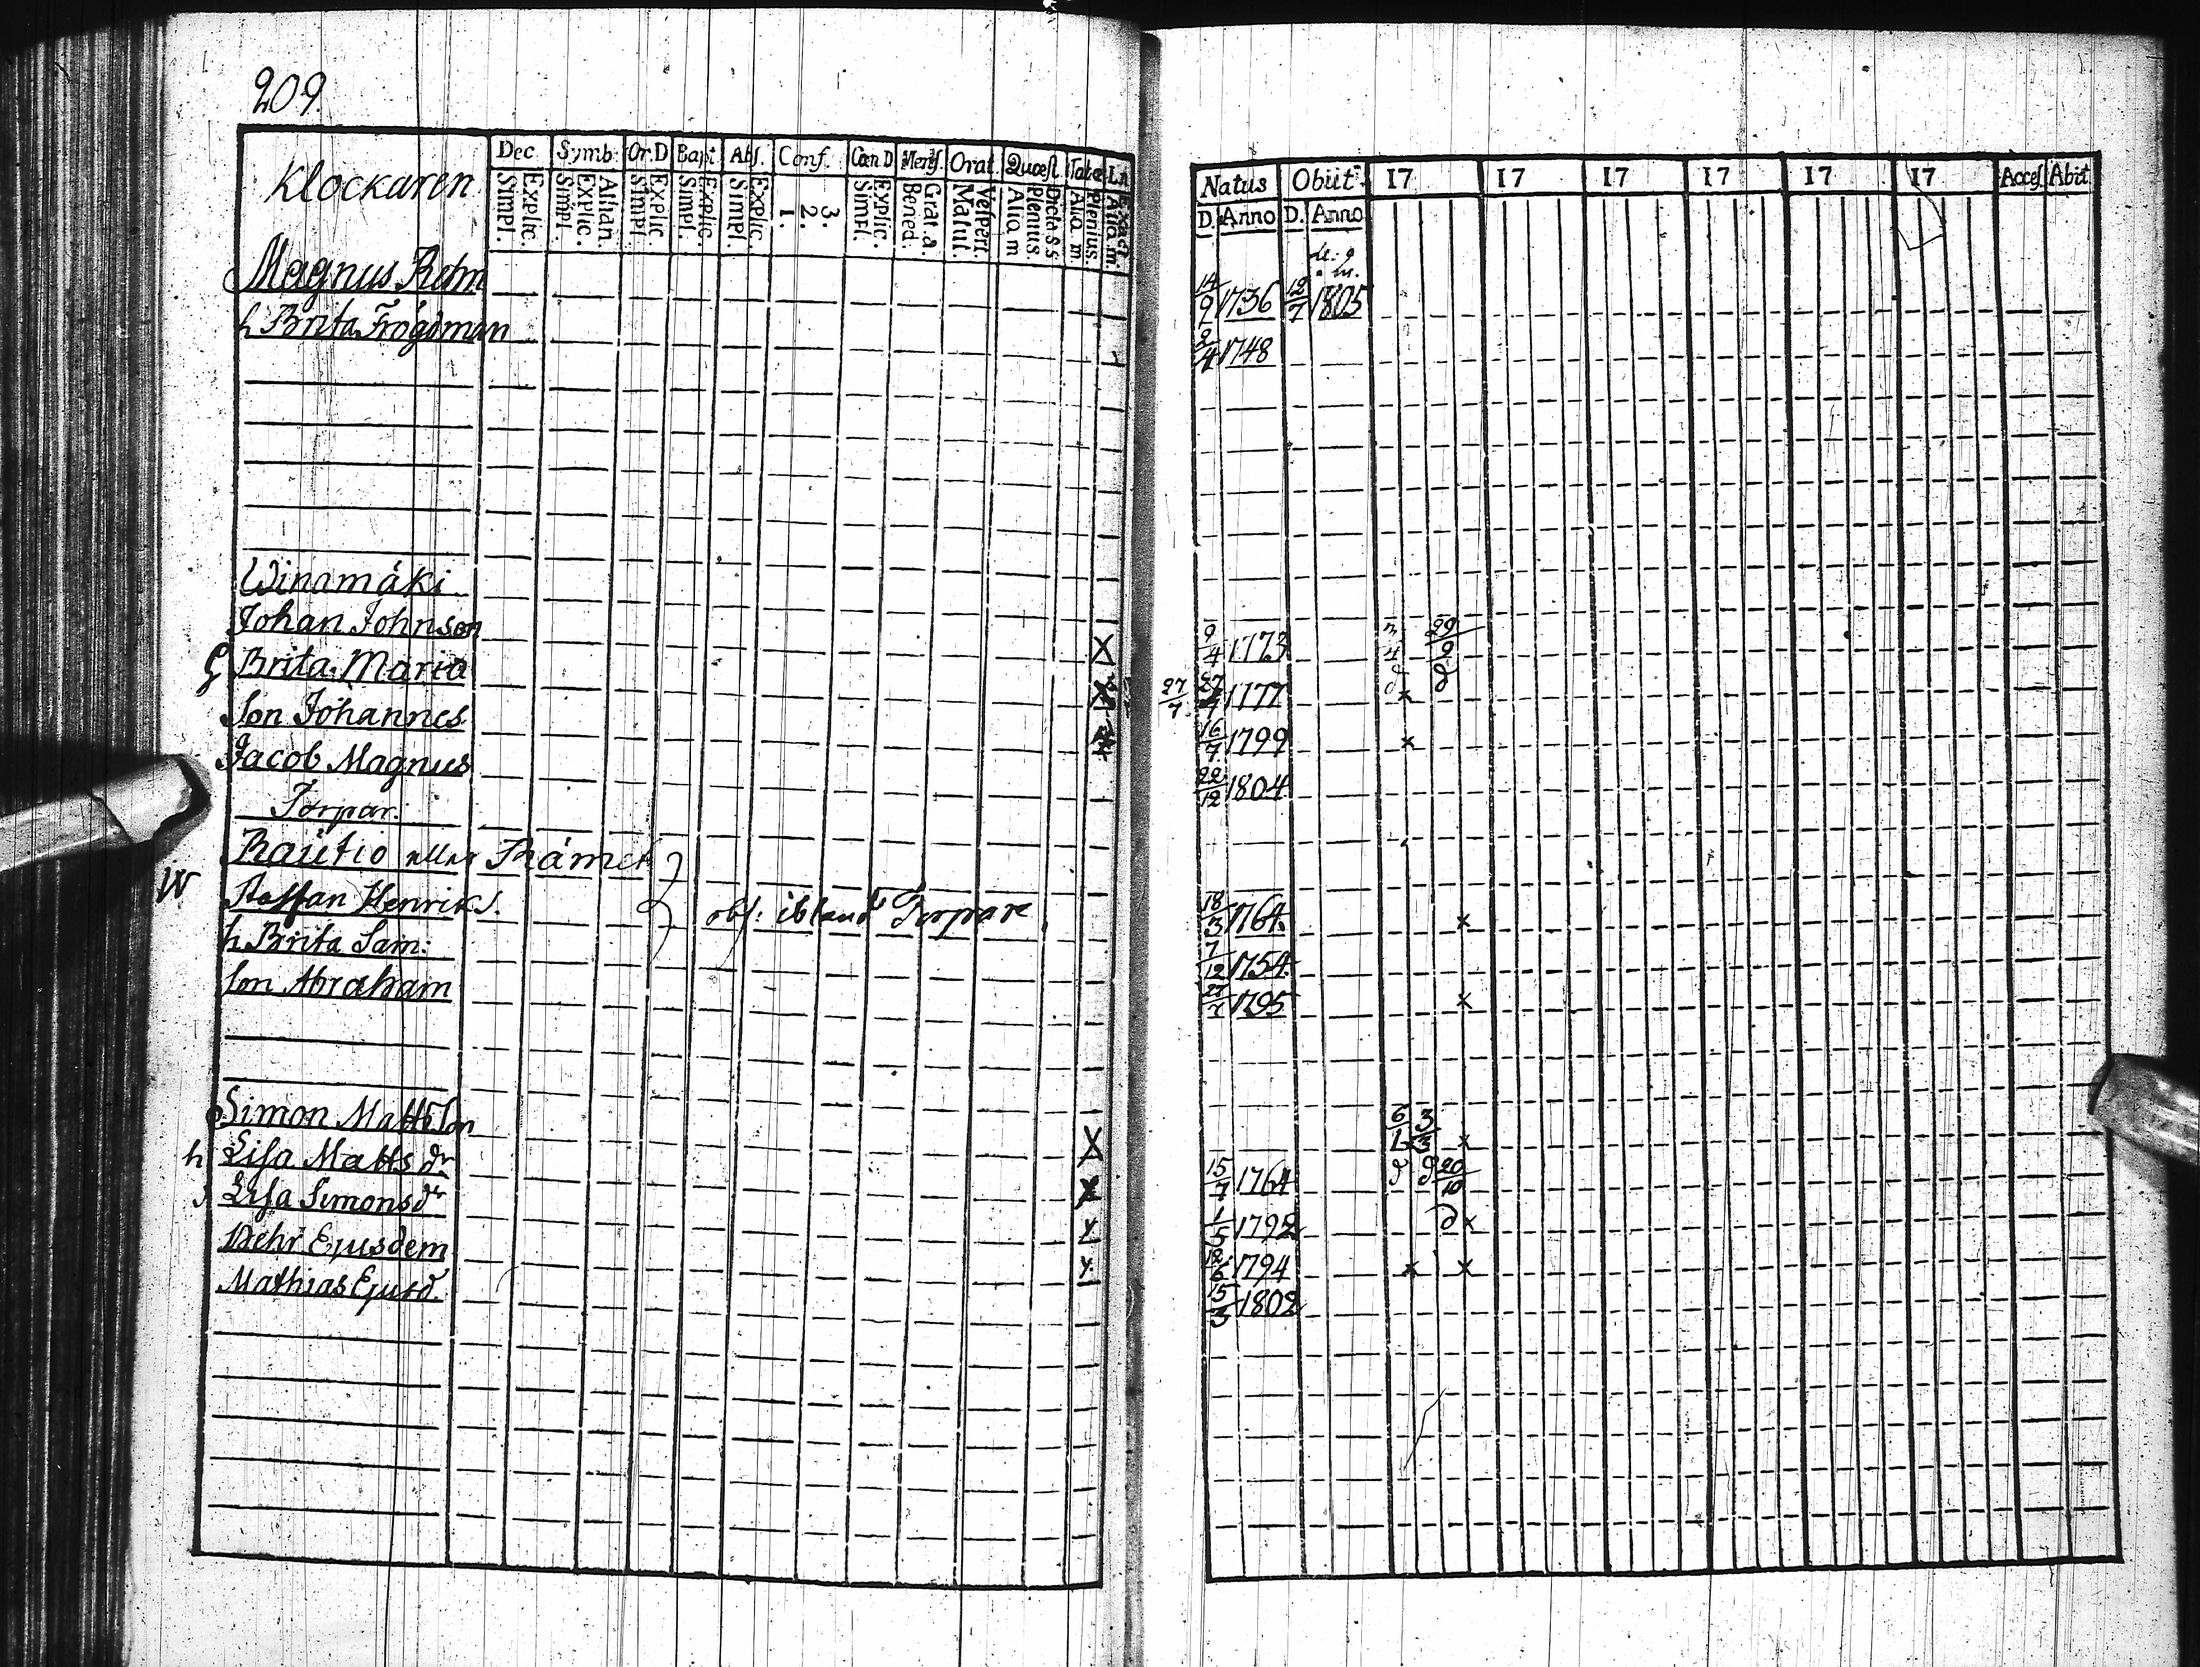 209.
Klockaren
Dec. Symb. Or. D Bapt. Abs. Conf. Cœn D Mens. Orat. Quæst.
Simpl. Explic. Simpl. Explic. Athan. Simpl. Explic. Simpl. Explic. Simpl. Explic. 1. 2. 3. Simpl. Explic. Bened. Grat. a. Matut. Vespert. Alia m Plenius. Dicta s s Alia m Plenius. Alia m. Exact.
Natus Obiit 17 17 17 17 17 17 Acces. Abiit
D. Anno D. Anno
Magnus Rehn 14/9 1736 18/7 1805
h Brita Frögdman 2/4 1748
Winamäki
Johan Johnson 9/4 1773 29/9
Brita Maria 27/7 1777 x
Son Johannes 16/7 1799 x
Jacob Magnus 22/12 1804
Torpar.
Rautio eller Thämet
W Staffan Henriks. obs: ibland Torpare 18/3 1764 x
h Brita Sam: 7/12 1754
Son Abraham 1795 x
Simon Matts Son 6 3 x
h Lisa Matts dr 15/7 1764 20/10
Lisa Simons dr 1/5 1792 x
Pehr Ejusdem 18/6 1794 x x
Mathias Ejusd. 15/3 1802